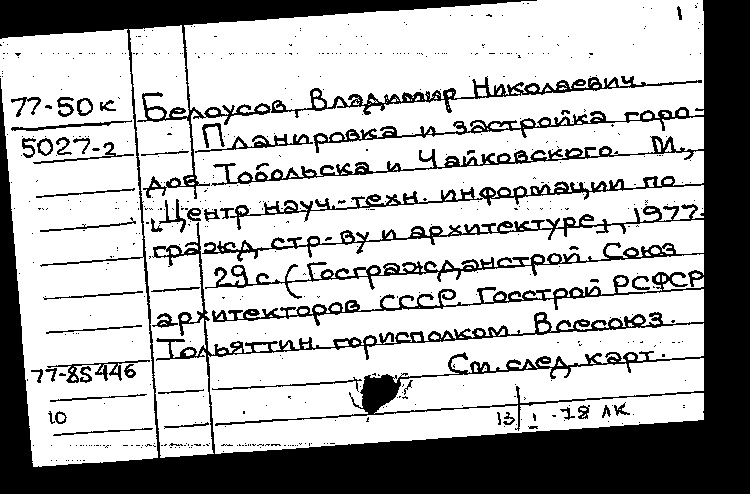 1
77-50к Белоусов, Владимир Николаевич.
5027-2 Планировка и застройка горо-
дов Тобольска и Чайковского. М.,
"Центр науч.-техн. информации по
гражд. стр-ву и архитектуре", 1977.
29 с. (Госгражданстрой. Союз
архитекторов СССР. Госстрой РСФСР
Тольяттин. горисполком. Всесоюз.
77-85446 См. след. карт.
10
13 I-78 ЛК